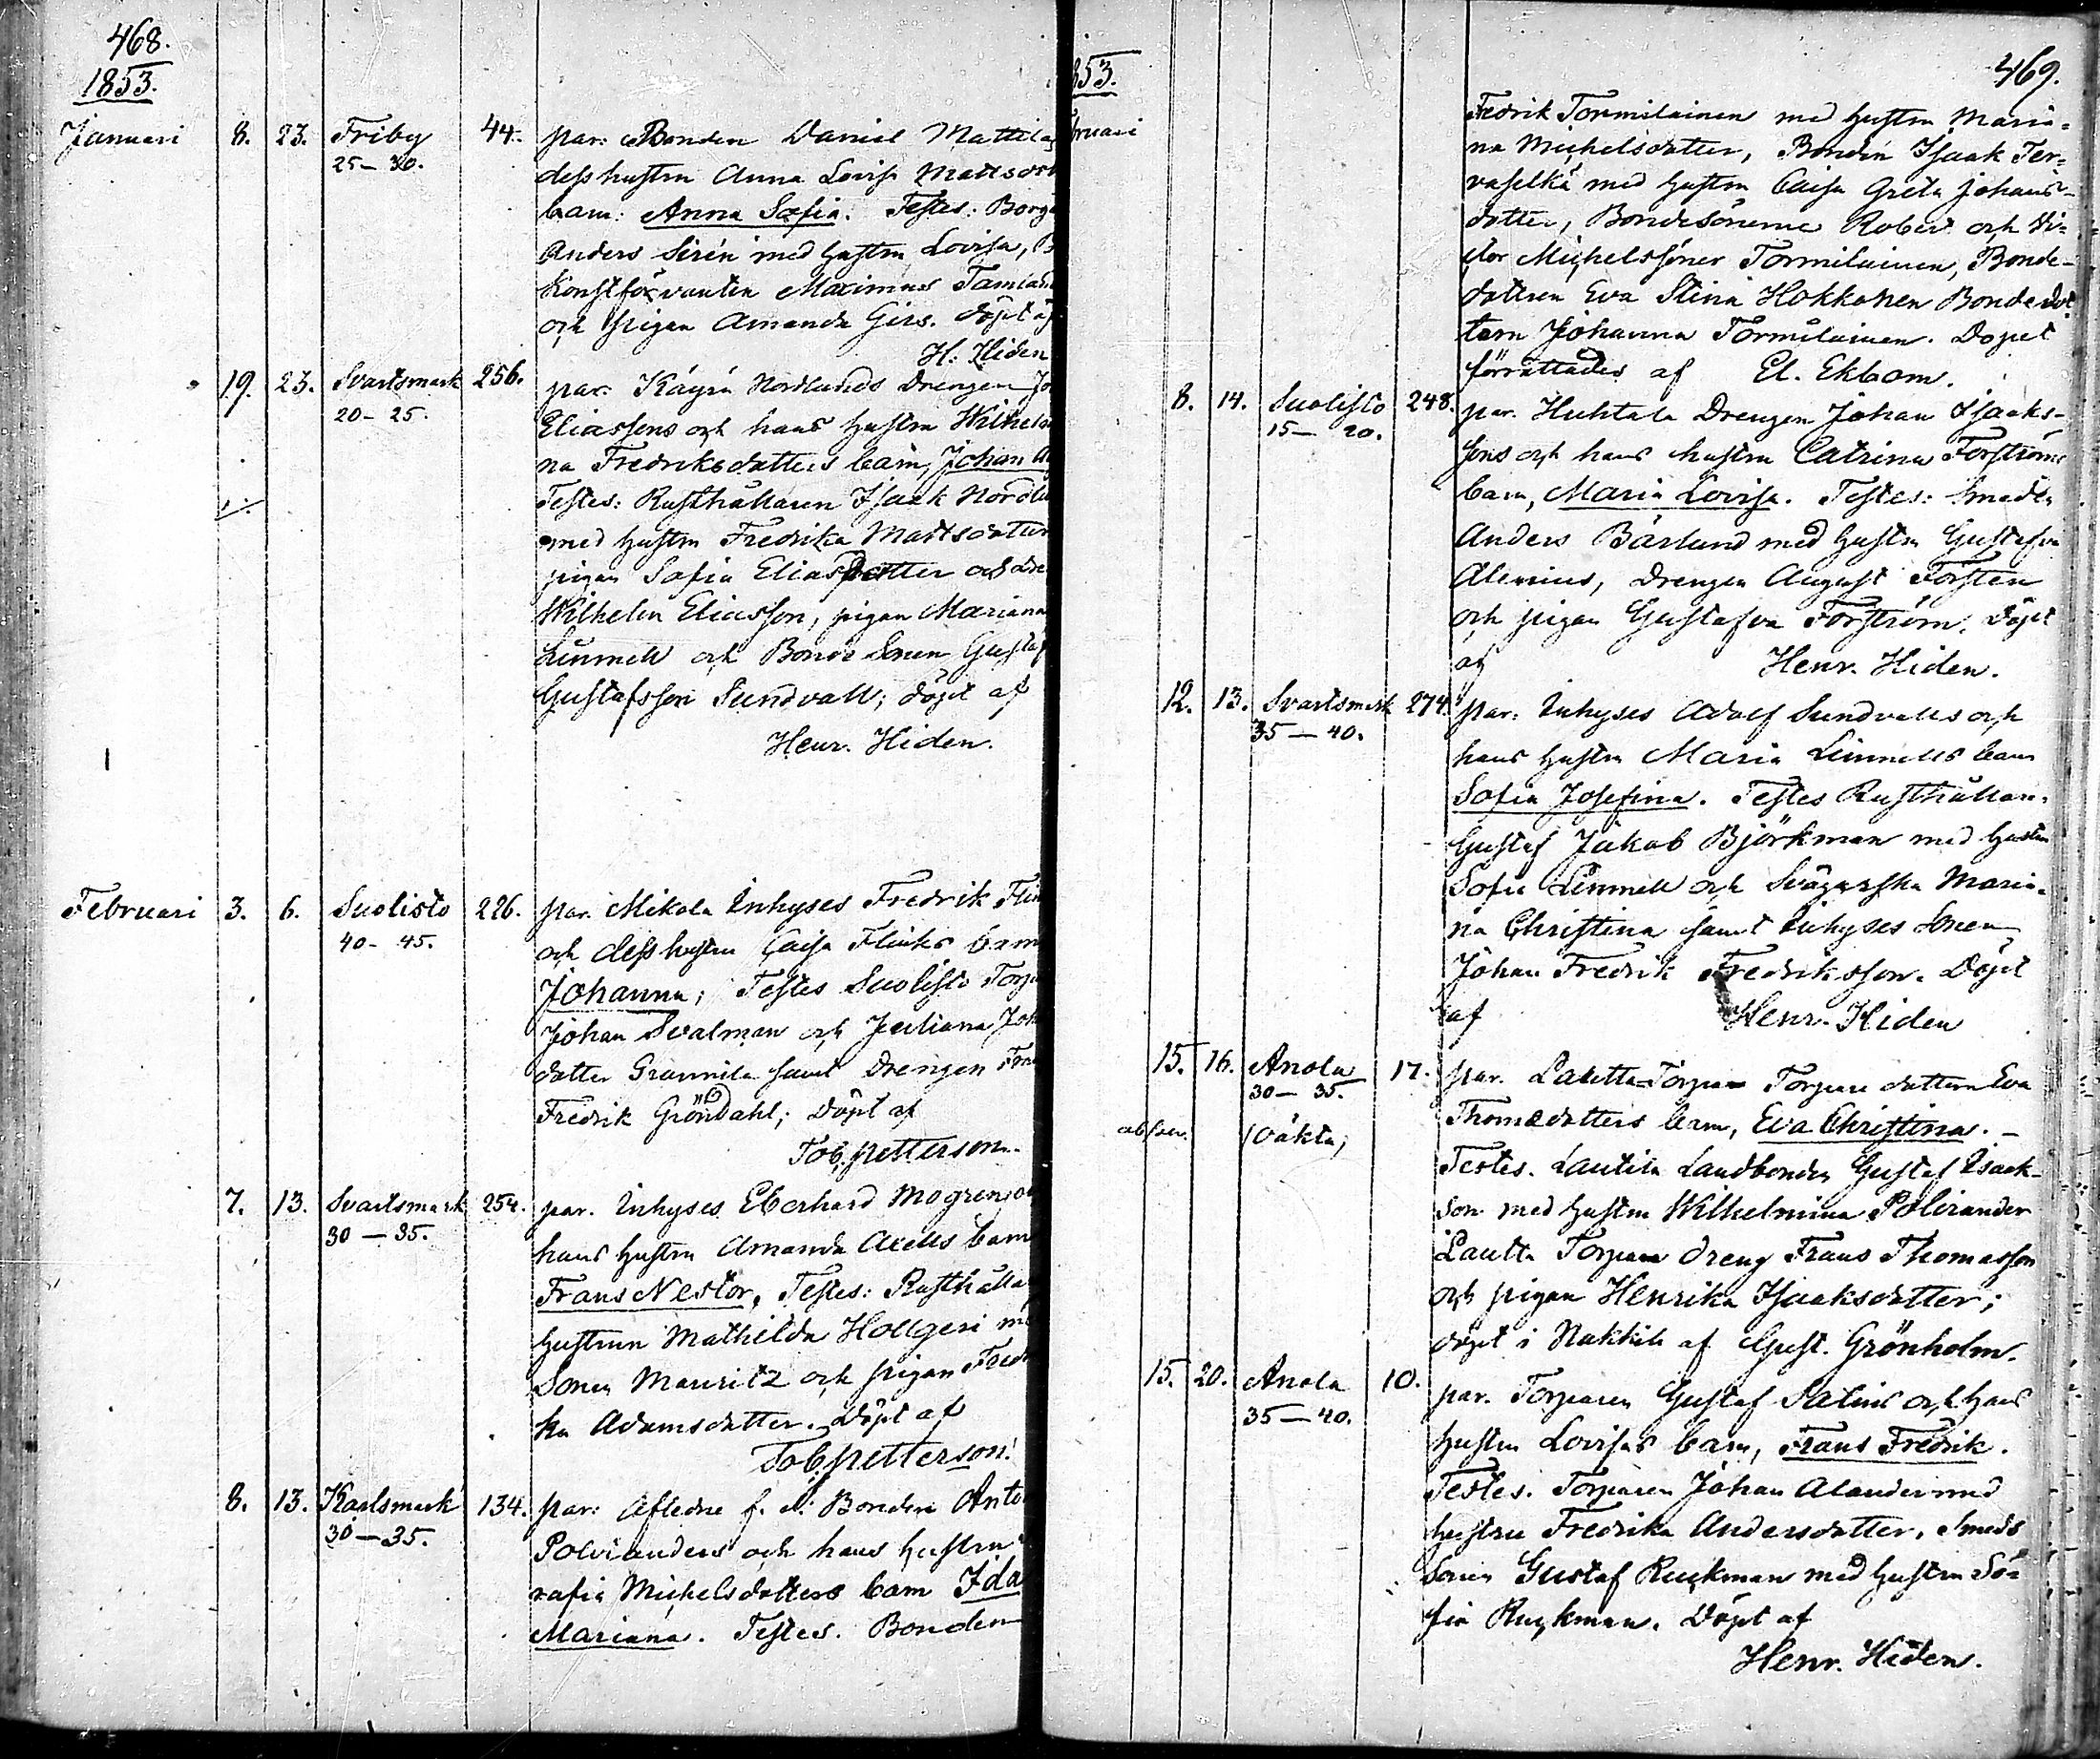 468.
1853.
Januari 8. 23. Friby 44. par: Bonden Daniel Mattila
25-30. dess hustru Anna Lovisa Mattsdot
barn: Anna Sofia. Testes: Borg
Anders Sirén med hustru Lovisa,
Konstförvanten Maximus
och pigan Amanda Girs. döpt af
H: Hiden
19. 23. Svartsmark 256. par. Käyrä Nordlunds Drengen Jo
20-25. Eliassons och hans hustru Wilhelm
na Fredriksdotters barn, Johan A
Testes: Rusthållaren Isaak Nordlu
med hustru Fredrika Mattsdotter
pigan Sofia Eliasdotter och Dre
Wilhelm Eliasson, pigan Mariana
Linnell och Bonde Sonen Gustaf
Gustafsson Sundvall; döpt af
Henr. Hiden.
Februari 3. 6. Suolisto 226. par. Mikola Inhyses Fredrik Flin
40-45. och dess hustru Caisa Flinks barn
Johanna; Testes Suolisto Torp
Johan Svalman och Juliana Joh
dotter Grannila samt Drengen
Fredrik Gröndahl; Döpt af
Tob. Petterson.
7. 13. Svartsmark 254. par. Inhyses Eberhard Mogren, oc
30-35. hans hustru Amanda Axells barn
Frans Nestor, Testes: Rusthålla
hustrun Mathilda Hollgeri m
Sonen Mauritz och pigan Fred
ka Adamsdotter. Döpt af
Tob. Petterson.
8. 13. Karlsmark 134. par: Afledne f. d. Bonden Anto
30-35. Polvianders och hans hustru
rafia Michelsdotters barn Ida
Mariana. Testes. Bonden
853.
bruari
469.
Fedrik Tormilainen med hustru Maria-
na Michelsdotter, Bonden Isaak Ter-
vaselkä med hustru Caisa Greta Johans-
dotter, Bondesönerne Robert och Vi-
ktor Michelssöner Tormilainen, Bonde-
dottren Eva Stina Hokkanen Bondedot
tern Johanna Tormilainen. Dopet
förrättades af El. Ekbom.
8. 14. Suolisto 248. par. Huhtala Drengen Johan Isaaks-
15-20. sons och hans hustru Catrina Forströms
barn, Maria Lovisa. Testes: Smeden
Anders Bärlund med hustru Gustafva
Alenius, Drengen August Forsten
och pigan Gustafva Forström. Döpt
af Henr. Hiden.
12. 13. Svartsmark 274. par: Inhyses Adolf Sundvalls och
35-40. hans hustru Maria Linnells barn
Sofia Josefina. Testes Rusthållan.
Gustaf Jakob Björkman med hustru
Sofia Linnell och Svägerska Maria-
na Christina samt Inhyses Sonen
Johan Fredrik Fredriksson. Döpt
af Henr. Hiden
15. 16. Anola 17. par. Lautta Torpare Torpare dottern Eva
30-35. Thomædotters barn, Eva Christina. -
absolv. (oäkta) Testes. Lautila Landbonden Gustaf Isaak-
son med hustru Wilhelmina Polviander
Lautta Torpare dreng Frans Thomasson
och pigan Henrika Isaaksdotter;
döpt i Nakkila af Gust. Grönholm.
15. 20. Anola 10. par. Torparen Gustaf Salins och hans
35-40. hustru Lovisas barn, Frans Fredrik.
Testes. Torparen Johan Alander med
hustru Fredrika Andersdotter, Smeds
Sonen Gustaf Ruckman med hustru So-
fia Ruckman. Döpt af
Henr. Hiden.